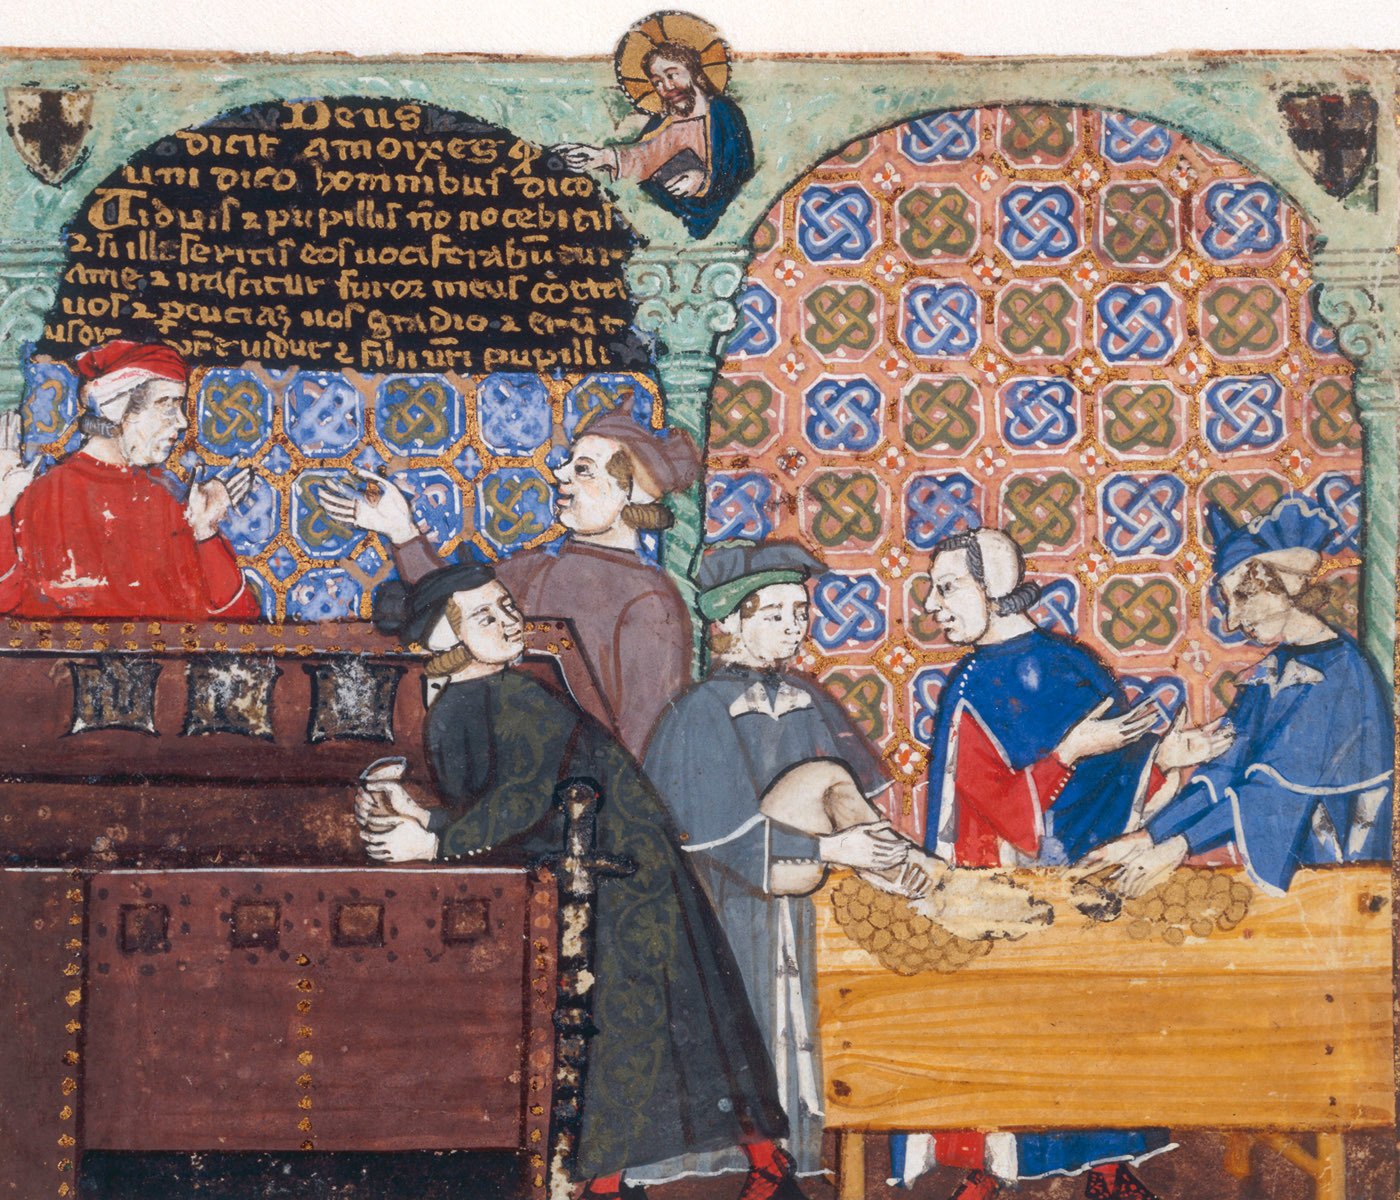 Deus
dicit amoixes q̄
uni dico hominibus dico
Viduis ⁊ pupillis nō nocebitis
⁊ si illeseritis eos vociferabūt
ame ⁊ irascitur furor meus cōtra
uos ⁊ percuciaz uos gladio ⁊ erūt
uidue ⁊ filii uri pupilli